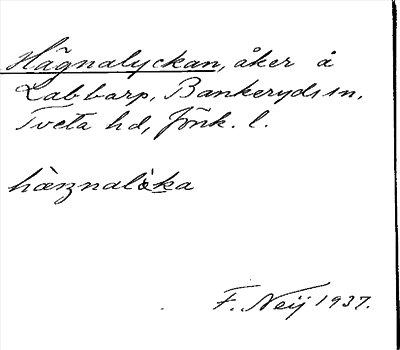 Hägnalyckan, åker å
Labbarp, Bankeryds sn,
Tveta hd, Jönk. l.
F. Neij 1937.